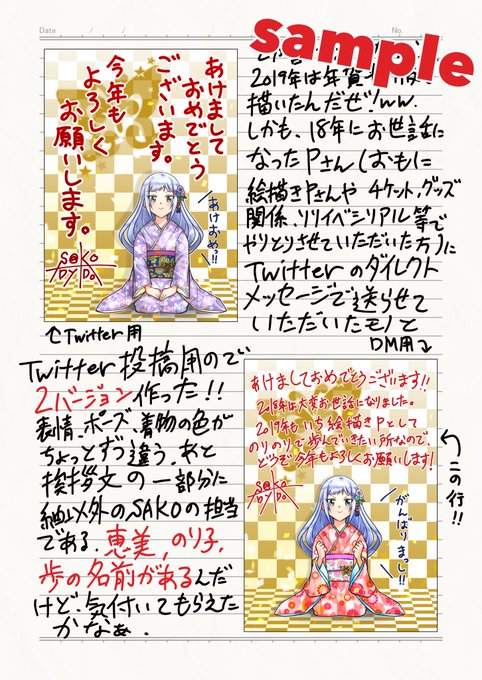 Date / / No.
sample
あけまして
おめでとう
ございます。
今年も
よろしく
お願いします。
あけおめっ!!
2019年は年賀
描いたんだぜ!ww.
しかも、18年にお世話に
なったPさん(おもに
絵描きPさんや チケット,グッズ
関係、リリイベシリアル等で
やりとりさせていただいた方)に
Twitterのダイレクト
メッセージで送らせて
いただいたモノと
↑Twitter用
DM用↓
Twitter投稿用ので
2バージョン作った!!
表情、ポーズ、着物の色が
ちょっとずつ違う。あと
挨拶文の一部分に
紬以外のSAKOの担当
である、恵美,のり子,
歩の名前があるんだ
けど、気付いてもらえた
かなぁ.
あけましておめでとうございます!!
2018年は大変お世話になりました。
2019年もいち絵描きPとして
のりのりで歩んでいきたい所なので、
どうぞ今年もよろしくお願いします!
がんばりまっし!!
この行!!